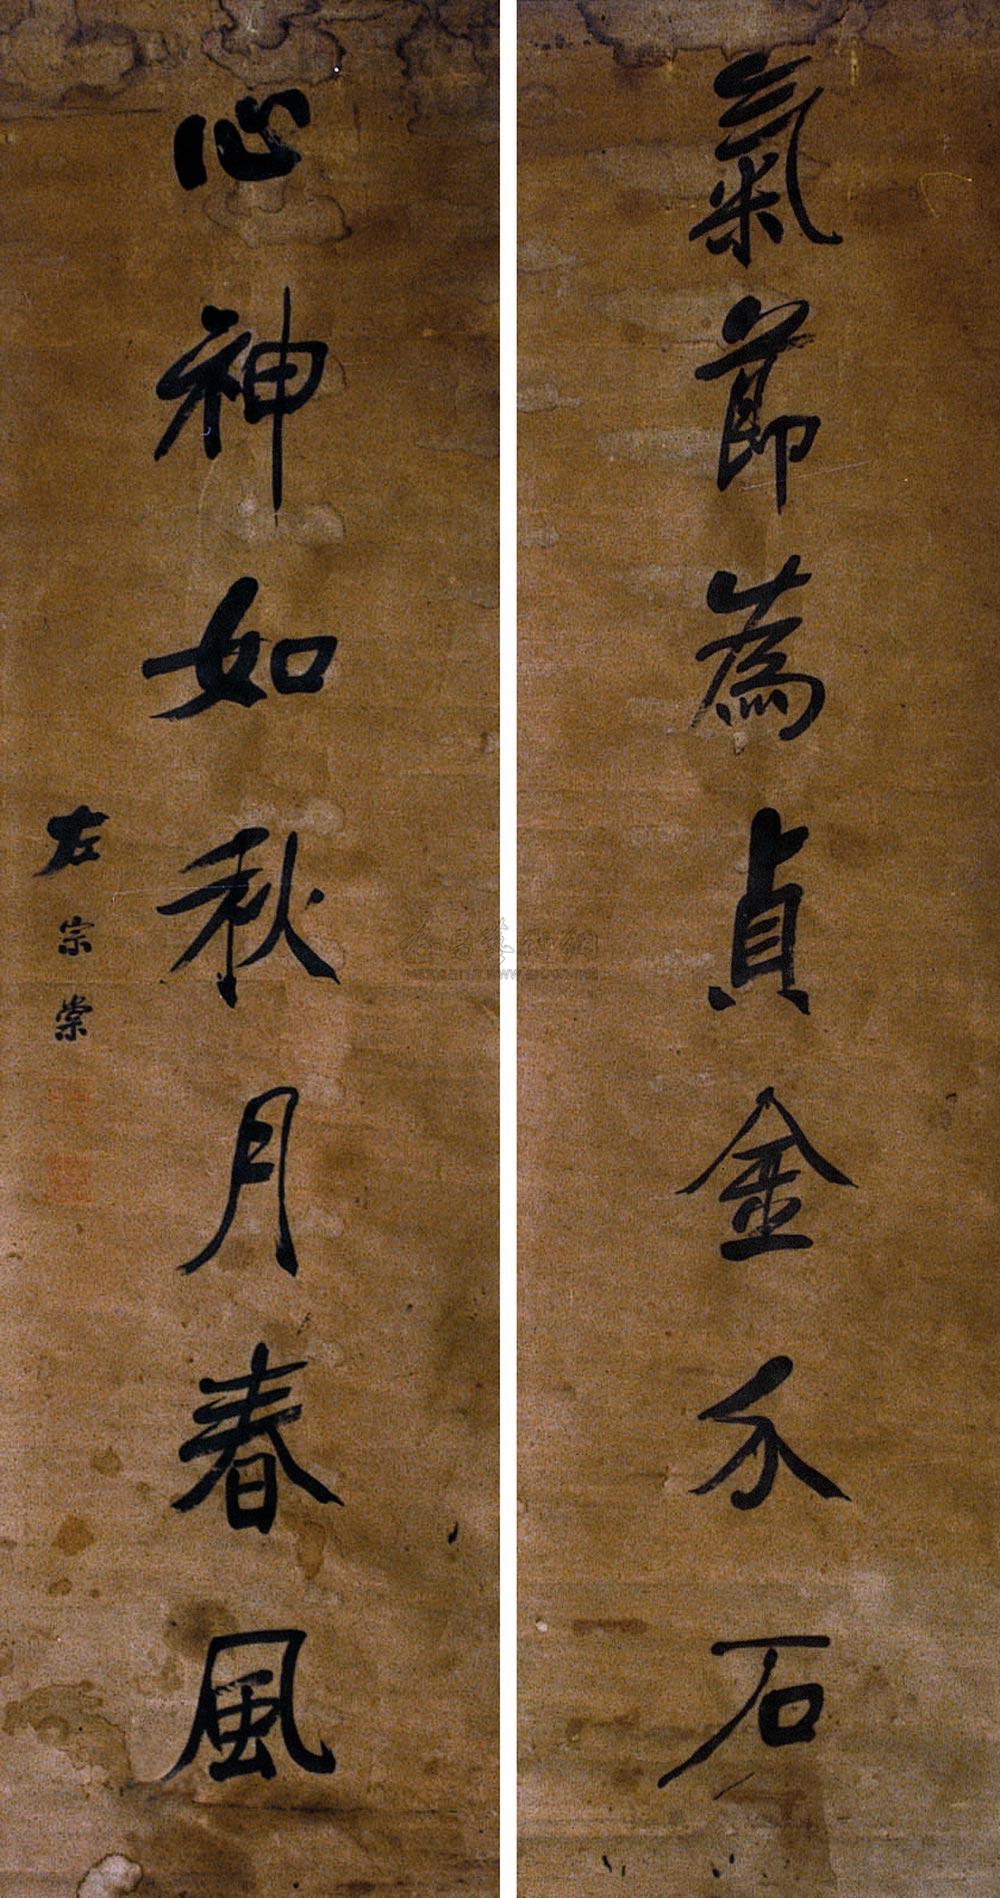 氣節為貞金介石
心神如秋月春風
左宗棠